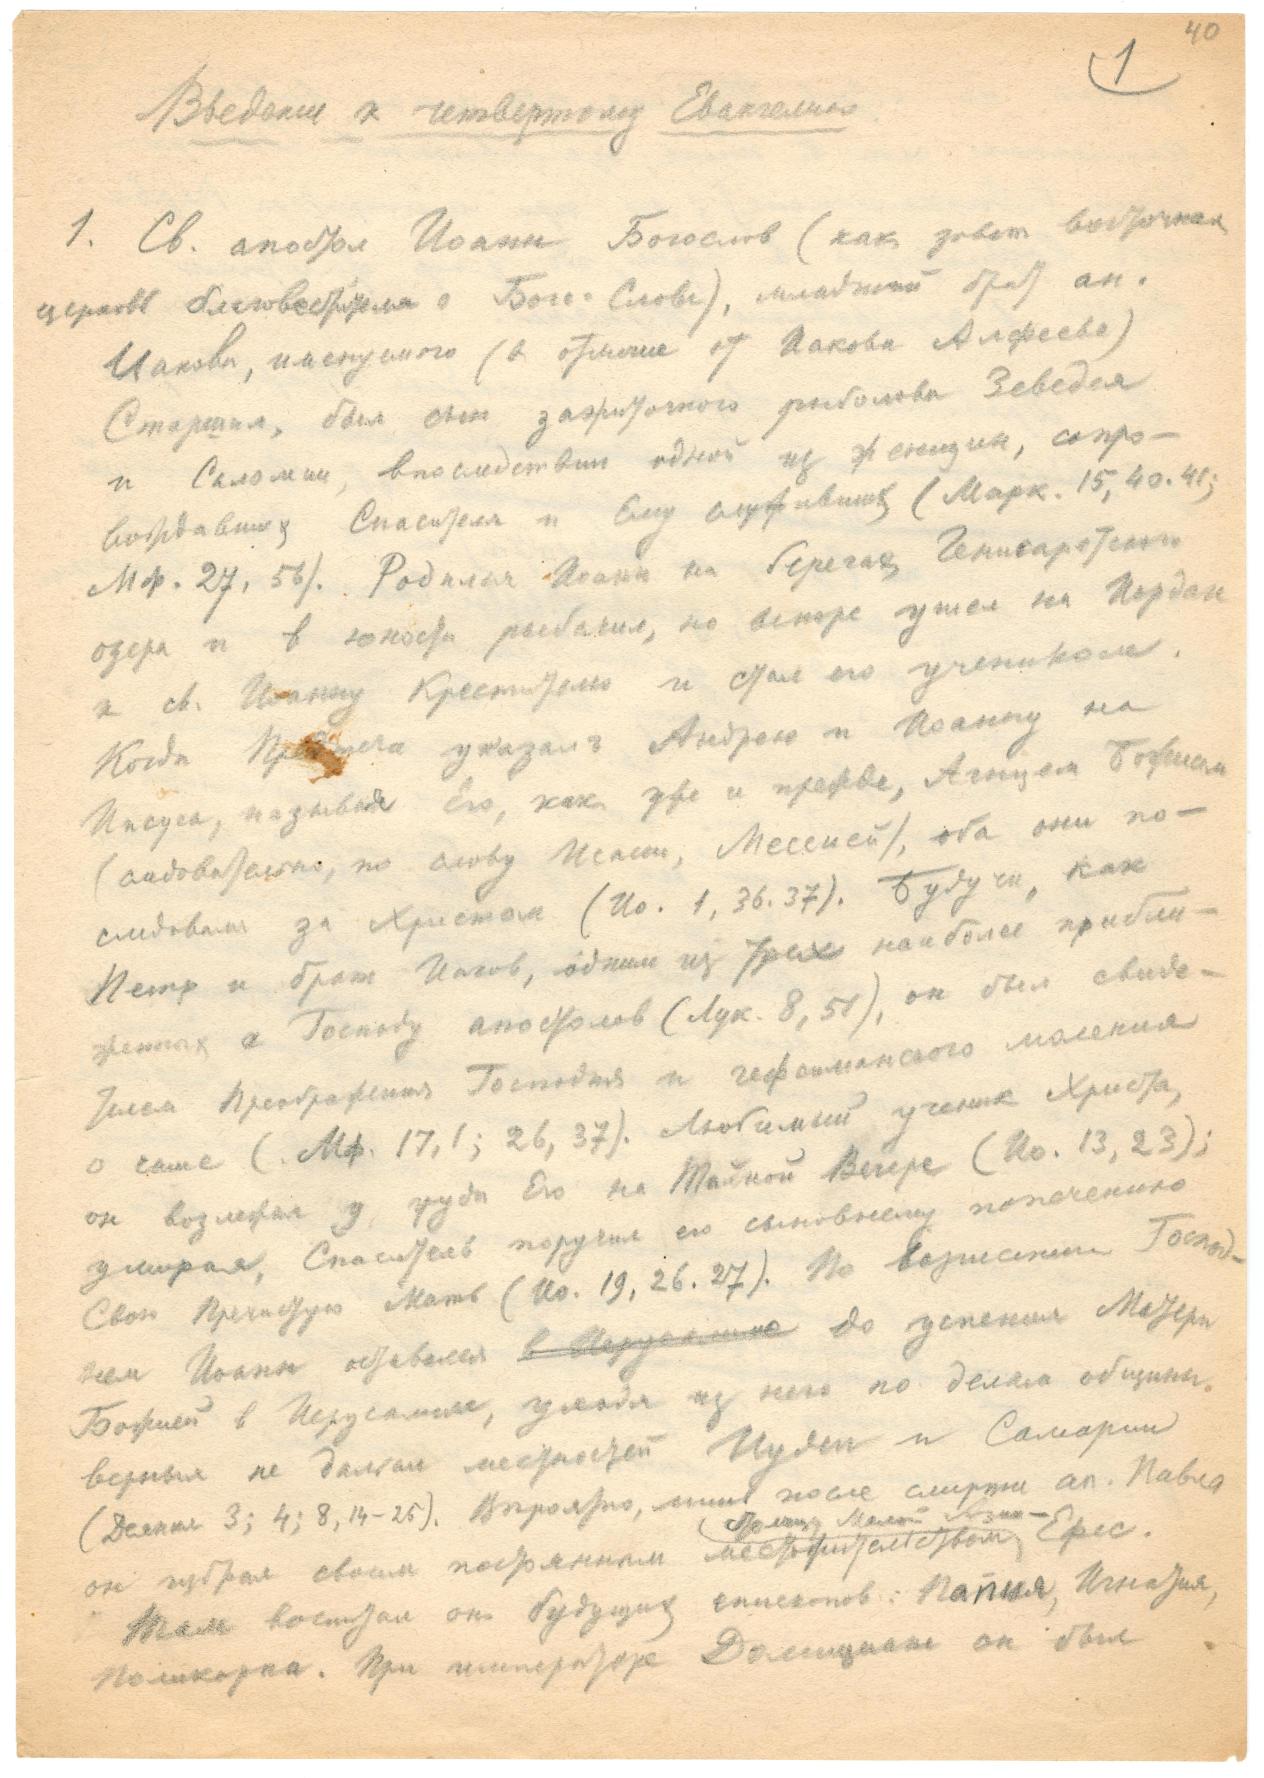 40
1
Введение к четвертому Евангелию
1. Св. апостол Иоанн Богослов (как зовет восточная
церковь благовестителя о Боге-Слове), младший брат ап.
Иакова, именуемого (в отличие от Иакова Алфеева)
Старшим, был сын зажиточного рыболова Зеведея
и Саломии, впоследствии одной из женщин, сопро-
вождавших Спасителя и Ему служивших (Марк. 15, 40.41;
Мф. 27, 56). Родился Иоанн на берегах Генисаретского
озера и в юности рыбачил, но вскоре ушел на Иордан
к св. Иоанну Крестителю и стал его учеником.
Когда Предтеча указал Андрею и Иоанну на
Иисуса, называя Его, как уже и прежде, Агнцем Божиим
(следовательно, по слову Исаии, Мессией), оба они по-
следовали за Христом (Ио. 1, 36.37). Будучи, как
Петр и брат Иаков, одним из трех наиболее прибли-
женных к Господу апостолов (Лук. 8, 51), он был свиде-
телем Преображения Господня и гефсиманского моления
о чаше (Мф. 17, 1; 26, 37). Любимый ученик Христа,
он возлежал у груди Его на Тайной Вечере (Ио. 13, 23);
умирая, Спаситель поручил его сыновнему попечению
Свою Пречистую Мать (Ио. 19, 26.27). По вознесении Господ-
нем Иоанн оставался в Иерусалиме до успения Матери
Божией в Иерусалиме, уходя из него по делам общины
верных не далее местностей Иудеи и Самарии
(Деяния 3; 4; 8, 14-25). Вероятно, лишь после смерти ап. Павла
столицу Малой Азии -
он избрал своим постоянным местожительством Ефес.
Там воспитал он будущих епископов: Папия, Игнатия,
Поликарпа. При императоре Домициане он был